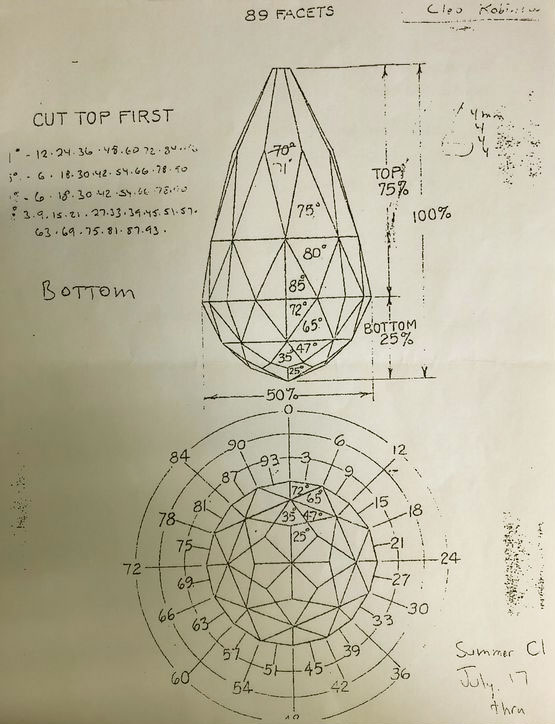 89 FACETS
Cleo
CUT TOP FIRST
- 12·24·36·48·60·72·84
- 6·18·30·42·54·66·78·90
- 6·18·30·42·54·66·78·90
3·9·15·21·27·33·39·45·51·57·
63·69·75·81·87·93·
BOTTOM
70°
71°
75°
80°
85°
72°
65°
47°
35°
25°
TOP
75%
100%
BOTTOM
25%
50%
4mm
4
4
4
0
90
6
84
93
3
12
87
9
72°
65°
81
15
78
18
35°
47°
75
21
25°
72
24
69
27
66
30
63
33
57
39
60
51
45
36
54
42
48
Summer Cl
July 17
thru